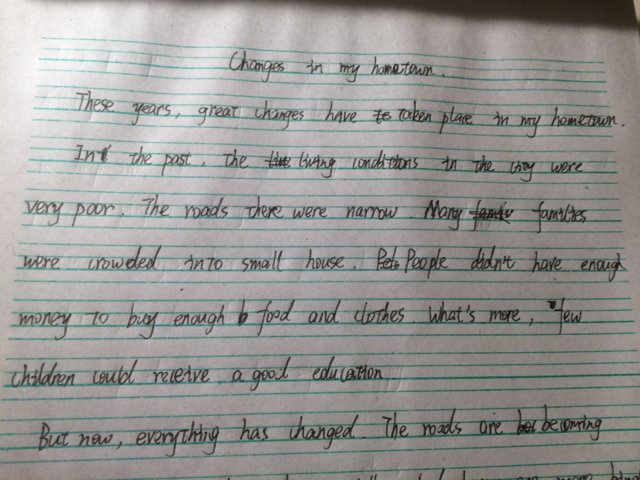 Changes in my hometown.
These years, great changes have taken place in my hometown.
In the past, the living conditions in the city were
very poor. The roads there were narrow. Many families
were crowded into small house. People didn't have enough
money to buy enough food and clothes. What's more, few
children could receive a good education
But now, everything has changed. The roads are becoming